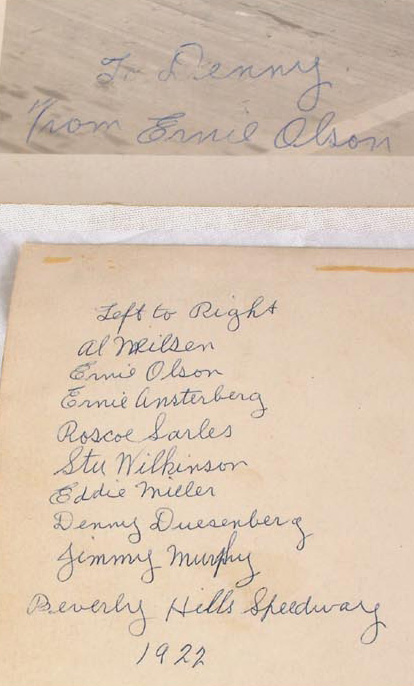 To Denny
From Ernie Olson
Left to Right
Al
Ernie Olson
Ernie Ansterberg
Roscoe Sarles
Stu Wilkinson
Eddie Miller
Denny Duesenberg
Jimmy Murphy
Beverly Hills Speedway
1922